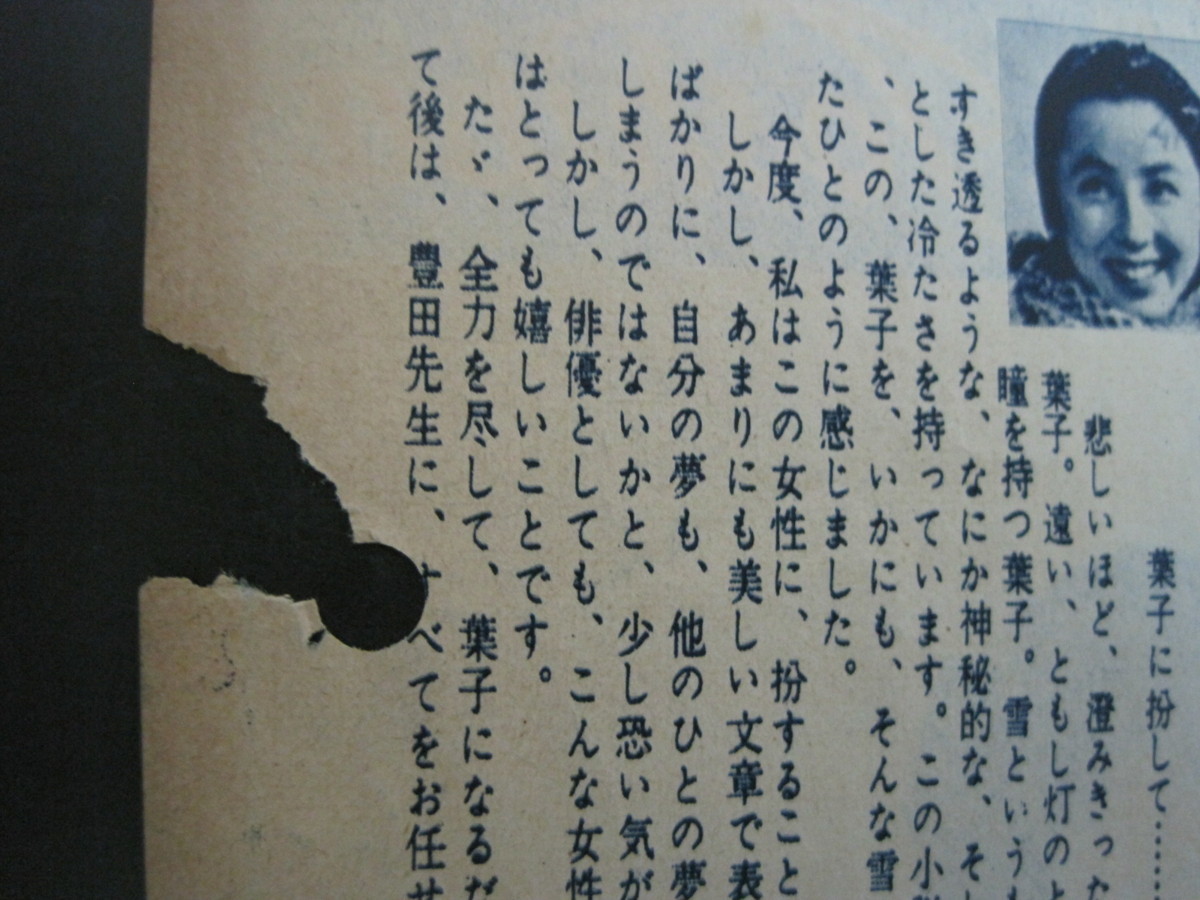 葉子に扮して……
悲しいほど、澄みきった
葉子。遠い、ともし灯のと
瞳を持つ葉子。雪というも
すき透るような、なにか神秘的な、そし
とした冷たさを持っています。この小
、この、葉子を、いかにも、そんな雪
たひとのように感じました。
今度、私はこの女性に、扮すること
しかし、あまりにも美しい文章で表
ばかりに、自分の夢も、他のひとの夢
しまうのではないかと、少し恐い気が
しかし、俳優としても、こんな女性
はとっても嬉しいことです。
たゞ、全力を尽して、葉子になるだ
て後は、豊田先生に、すべてをお任せ